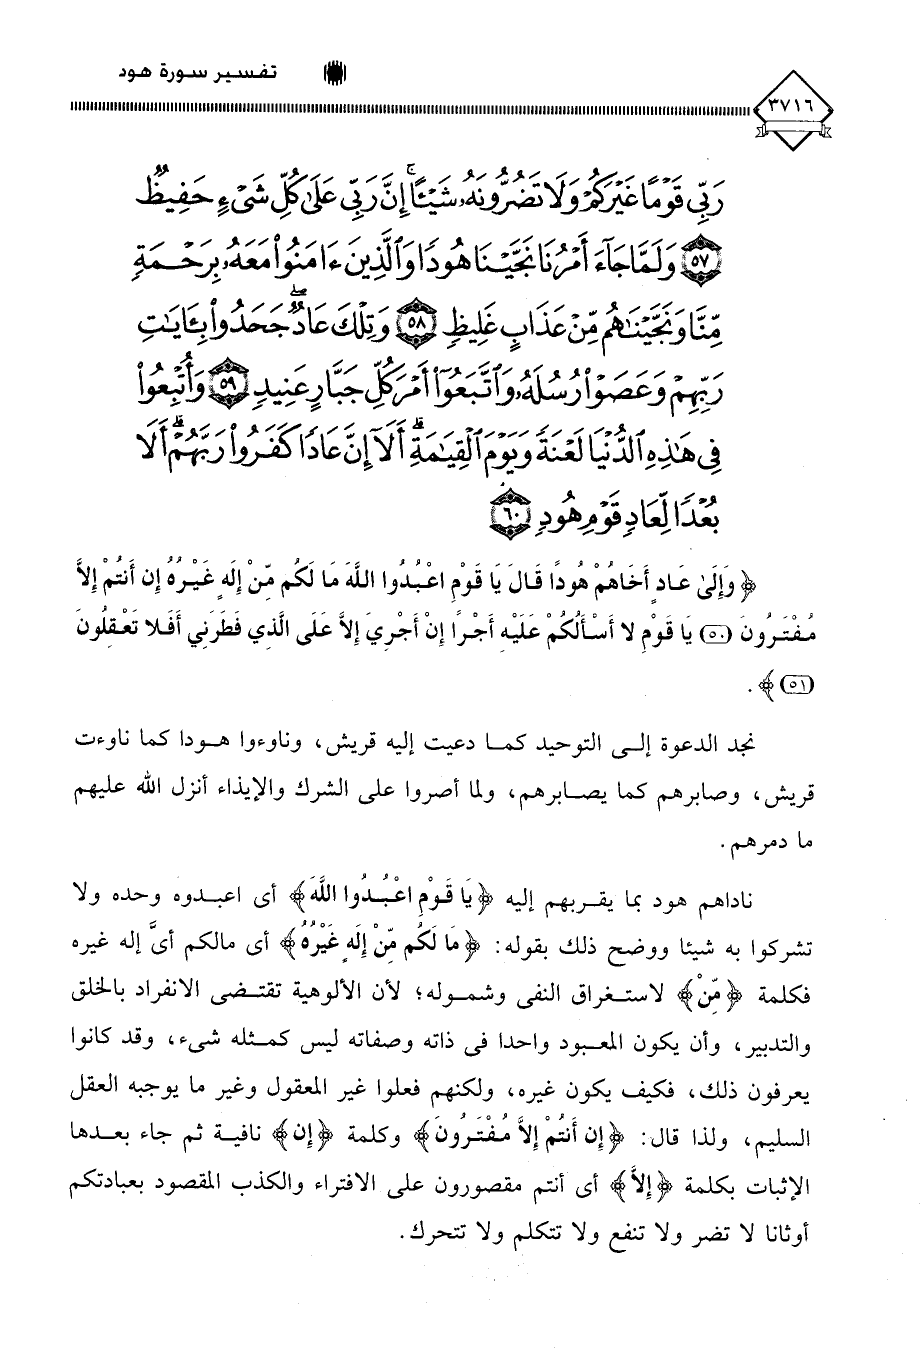 تفسير سورة هود
٣٧١٦
رَبِّي قَوْمًا غَيْرَكُمْ وَلَا تَضُرُّونَهُۥ شَيْـًٔا ۚ إِنَّ رَبِّي عَلَىٰ كُلِّ شَىْءٍ حَفِيظٌ
٥٧ وَلَمَّا جَآءَ أَمْرُنَا نَجَّيْنَا هُودًا وَٱلَّذِينَ ءَامَنُوا۟ مَعَهُۥ بِرَحْمَةٍ
مِّنَّا وَنَجَّيْنَـٰهُم مِّنْ عَذَابٍ غَلِيظٍ ٥٨ وَتِلْكَ عَادٌ ۖ جَحَدُوا۟ بِـَٔايَـٰتِ
رَبِّهِمْ وَعَصَوْا۟ رُسُلَهُۥ وَٱتَّبَعُوٓا۟ أَمْرَ كُلِّ جَبَّارٍ عَنِيدٍ ٥٩ وَأُتْبِعُوا۟
فِي هَـٰذِهِ ٱلدُّنْيَا لَعْنَةً وَيَوْمَ ٱلْقِيَـٰمَةِ ۗ أَلَآ إِنَّ عَادًا كَفَرُوا۟ رَبَّهُمْ ۗ أَلَا
بُعْدًا لِّعَادٍ قَوْمِ هُودٍ ٦٠
﴿ وَإِلَىٰ عَادٍ أَخَاهُمْ هُودًا قَالَ يَا قَوْمِ اعْبُدُوا اللَّهَ مَا لَكُم مِّنْ إِلَهٍ غَيْرُهُ إِن أَنتُمْ إِلاَّ
مُفْتَرُونَ (٥٠) يَا قَوْمِ لا أَسْأَلُكُمْ عَلَيْهِ أَجْرًا إِنْ أَجْرِيَ إِلاَّ عَلَى الَّذِي فَطَرَنِي أَفَلا تَعْقِلُونَ
(٥١) ﴾ .
نجد الدعوة إلى التوحيد كما دعيت إليه قريش، وناوءوا هودا كما ناوءت
قريش، وصابرهم كما يصابرهم، ولما أصروا على الشرك والإيذاء أنزل الله عليهم
ما دمرهم.
ناداهم هود بما يقربهم إليه ﴿ يَا قَوْمِ اعْبُدُوا اللَّهَ ﴾ أى اعبدوه وحده ولا
تشركوا به شيئا ووضح ذلك بقوله: ﴿ مَا لَكُم مِّنْ إِلَهٍ غَيْرُهُ ﴾ أى مالكم أىَّ إله غيره
فكلمة ﴿ مِّنْ ﴾ لاستغراق النفى وشموله؛ لأن الألوهية تقتضى الانفراد بالخلق
والتدبير، وأن يكون المعبود واحدا فى ذاته وصفاته ليس كمثله شىء، وقد كانوا
يعرفون ذلك، فكيف يكون غيره، ولكنهم فعلوا غير المعقول وغير ما يوجبه العقل
السليم، ولذا قال: ﴿ إِن أَنتُمْ إِلاَّ مُفْتَرُونَ ﴾ وكلمة ﴿ إِن ﴾ نافية ثم جاء بعدها
الإثبات بكلمة ﴿ إِلاَّ ﴾ أى أنتم مقصورون على الافتراء والكذب المقصود بعبادتكم
أوثانا لا تضر ولا تنفع ولا تتكلم ولا تتحرك.